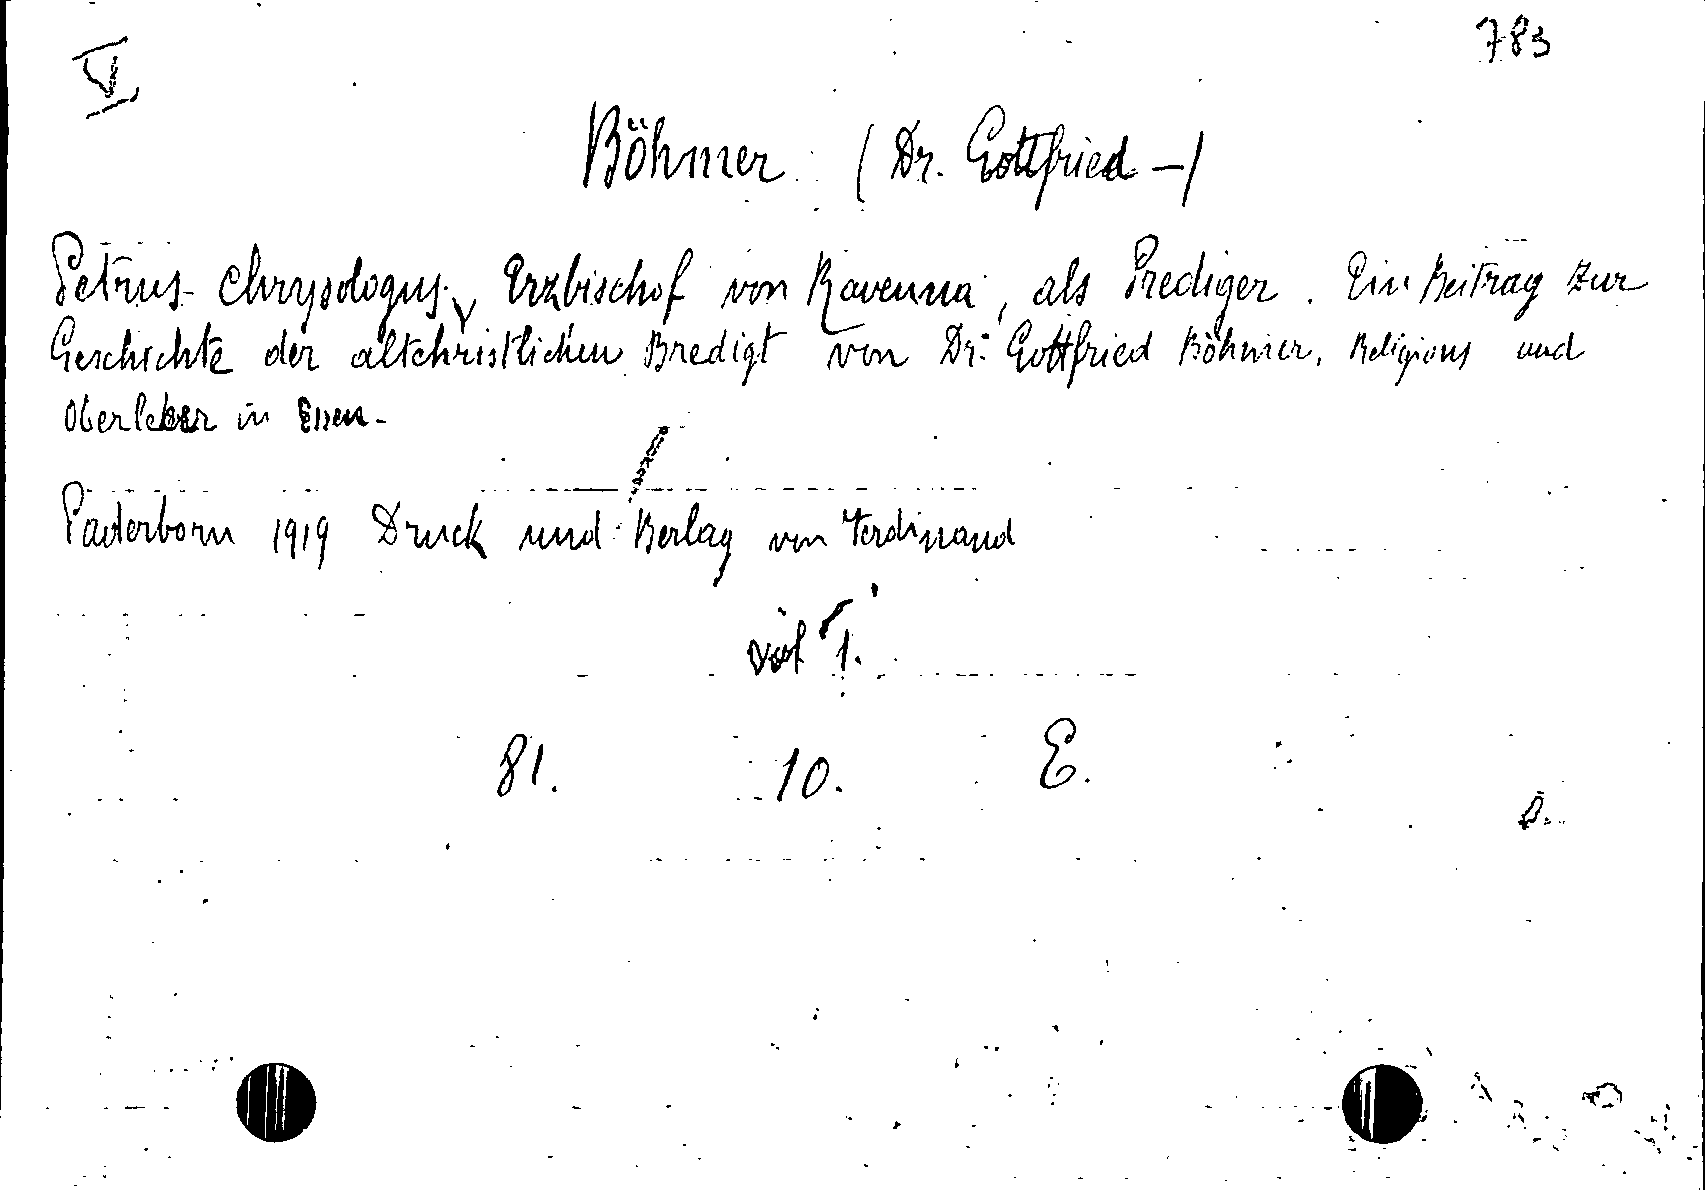 V
783
Böhmer (Dr. Gottfried -)
Petrus Chrysologus, Erzbischof von Ravenna, als Prediger. Ein Beitrag zur
Geschichte der altchristlichen Bredigt von Dr. Gottfried Böhmer, Religions und
Oberleher in Essen.
Paderborn 1919 Druck und Berlag von Ferdinand
vol 1.
81. 10. E.